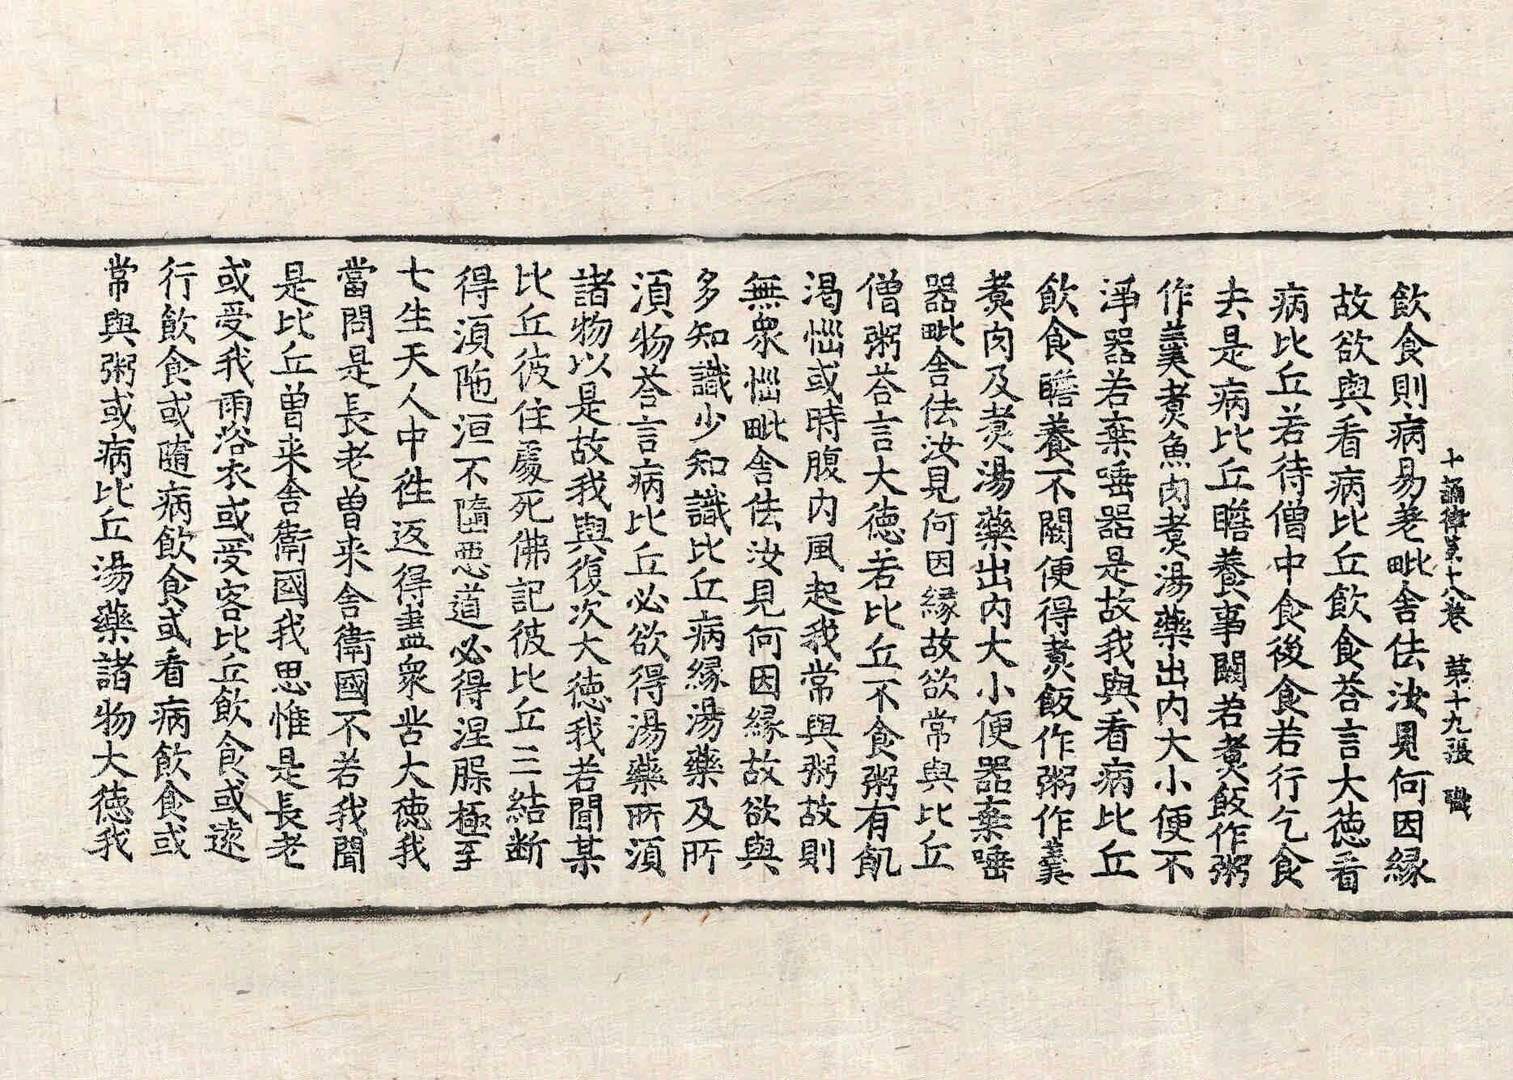 十誦律第十八卷　第十九張　職
飲食則病易差毗舍佉汝見何因緣
故欲與看病比丘飲食荅言大德看
病比丘若待僧中食後食若行乞食
去是病比丘瞻養事闕若煑飯作粥
作羹煑魚肉煑湯藥出內大小便不
淨器若棄唾器是故我與看病比丘
飲食瞻養不闕便得煑飯作粥作羹
煑肉及煑湯藥出內大小便器棄唾
器毗舍佉汝見何因緣故欲常與比丘
僧粥荅言大德若比丘不食粥有飢
渴惱或時腹內風起我常與粥故則
無衆惱毗舍佉汝見何因緣故欲與
多知識少知識比丘病緣湯藥及所
湏物荅言病比丘必欲得湯藥所湏
諸物以是故我與復次大德我若聞某
比丘彼住處死佛記彼比丘三結断
得湏陁洹不隨惡道必得涅槃極至
七生天人中徃返得盡衆苦大德我
當問是長老曾来舍衛國不若我聞
是比丘曾来舍衛國我思惟是長老
或受我雨浴衣或受客比丘飲食或遠
行飲食或隨病飲食或看病飲食或
常與粥或病比丘湯藥諸物大德我